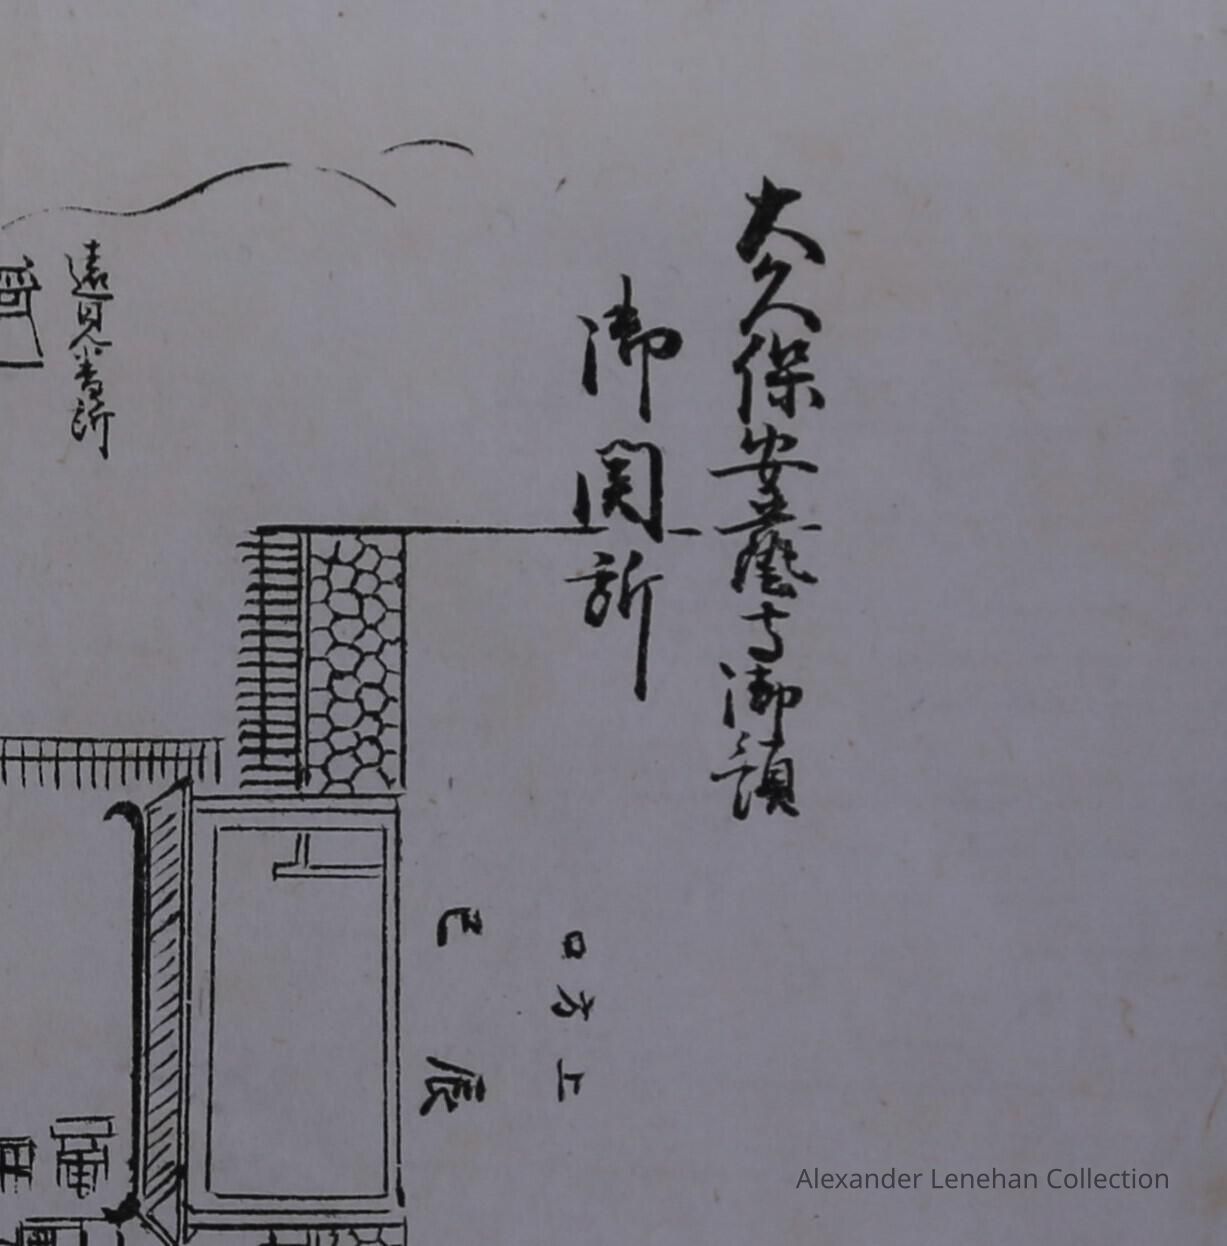 大久保安藝守御領
御関所
遠見番所
上方口
辰
巳
Alexander Lenehan Collection